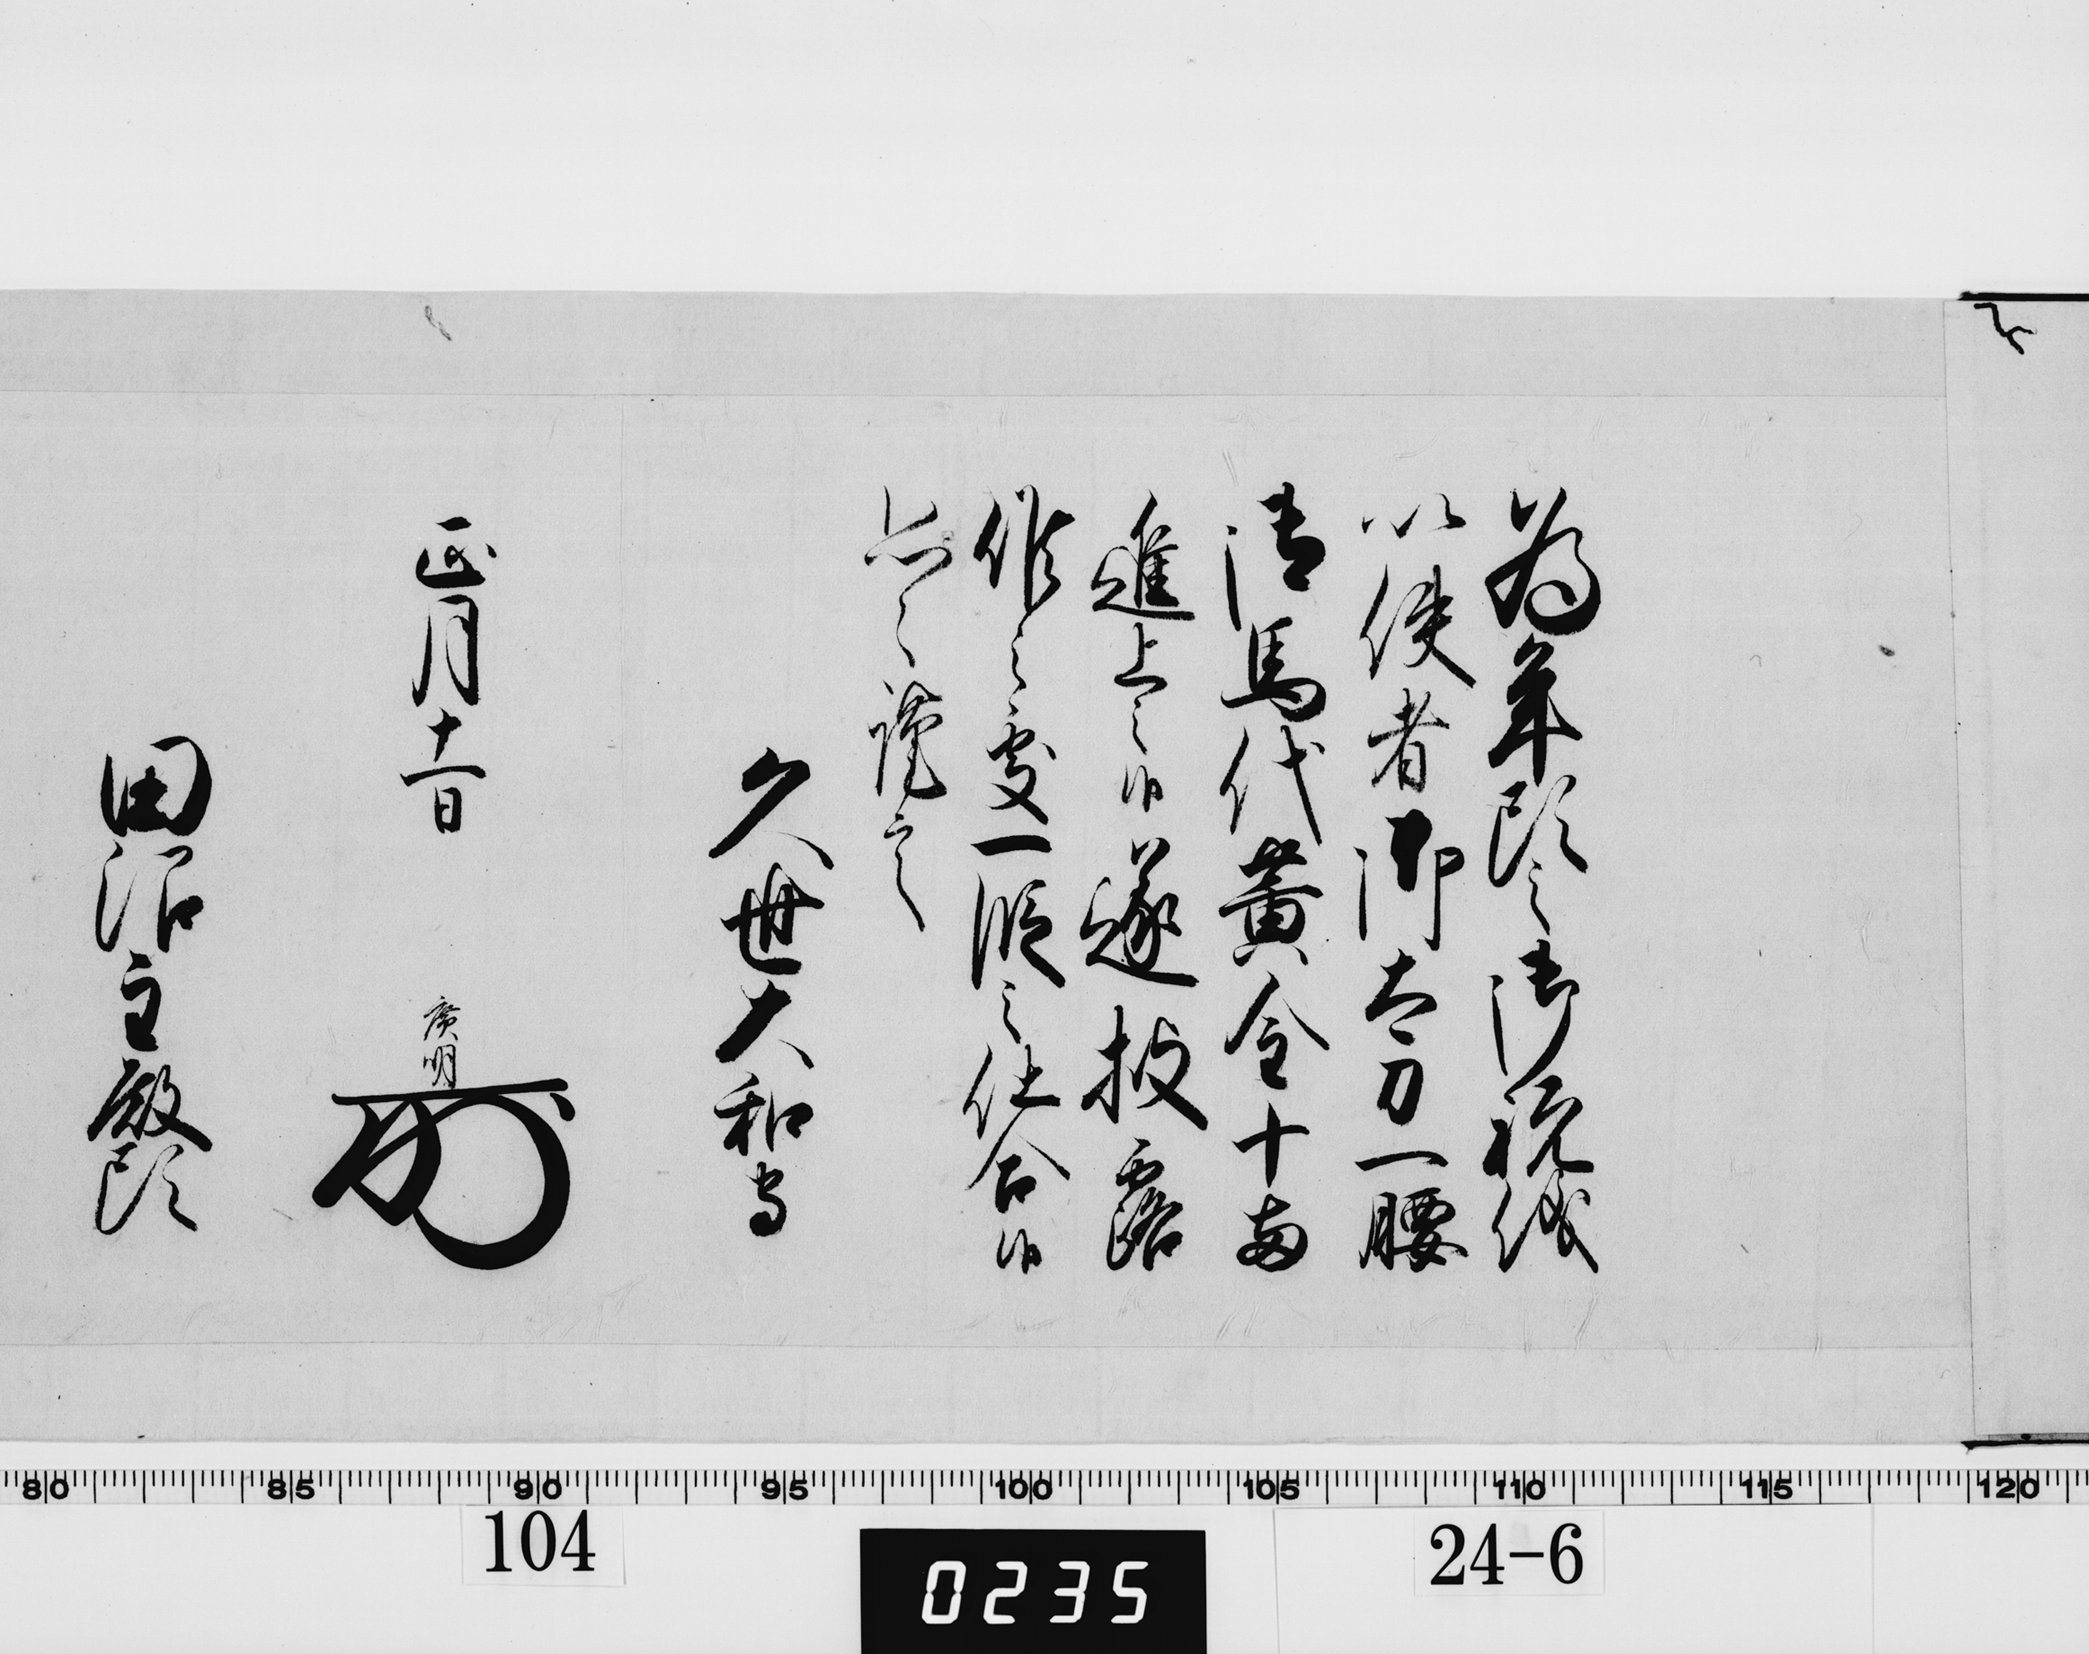 為年頭之御祝儀
以使者御太刀一腰
御馬代黄金十両
進上之候遂披露
候之處一段之仕合候
恐々謹言
久世大和守
正月十一日
廣明
田沼主殿頭
80 85 90 95 100 105 110 115 120
104
24-6
0235